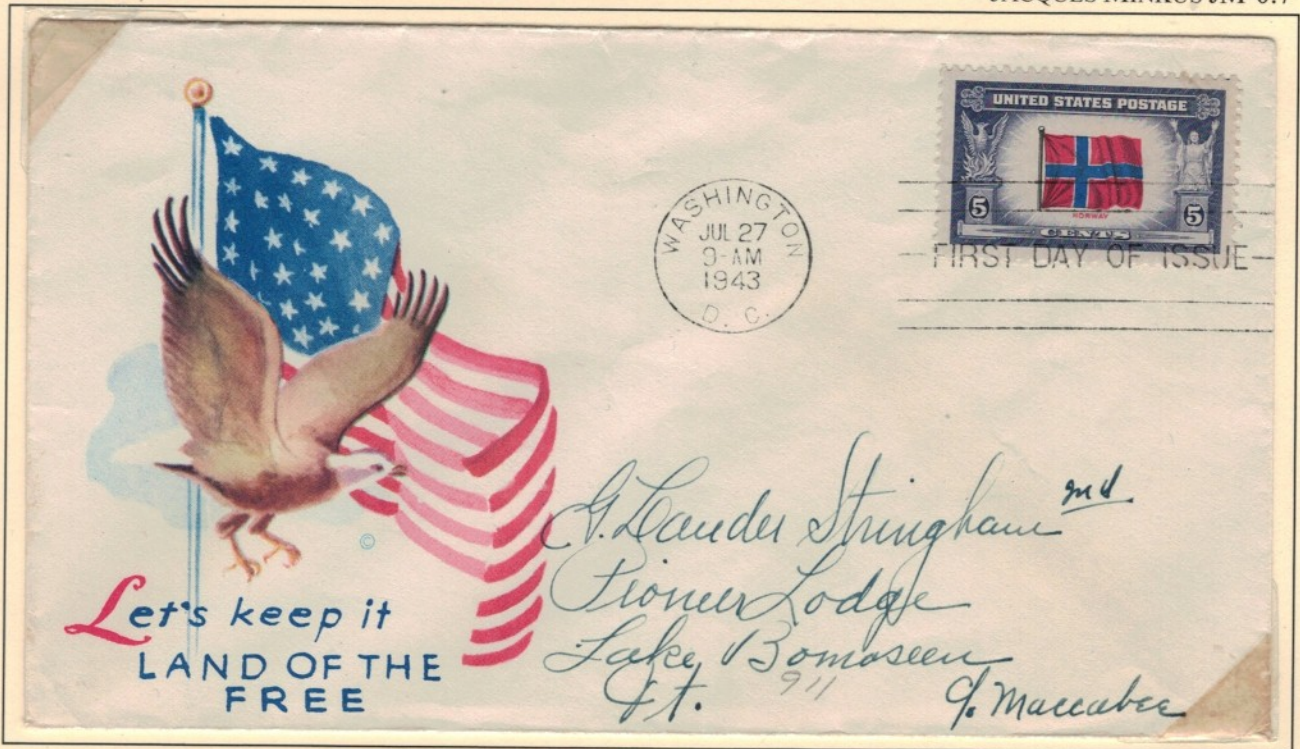 JACQUES MINKUS JM
UNITED STATES POSTAGE
NORWAY
5 5
CENTS
WASHINGTON
JUL 27
9-AM
1943
D. C.
FIRST DAY OF ISSUE
©
Let's keep it
LAND OF THE
FREE
G. Lander Stringham 2nd
Pioneer Lodge
Lake Bomoseen
Vt.
911
Maccabee